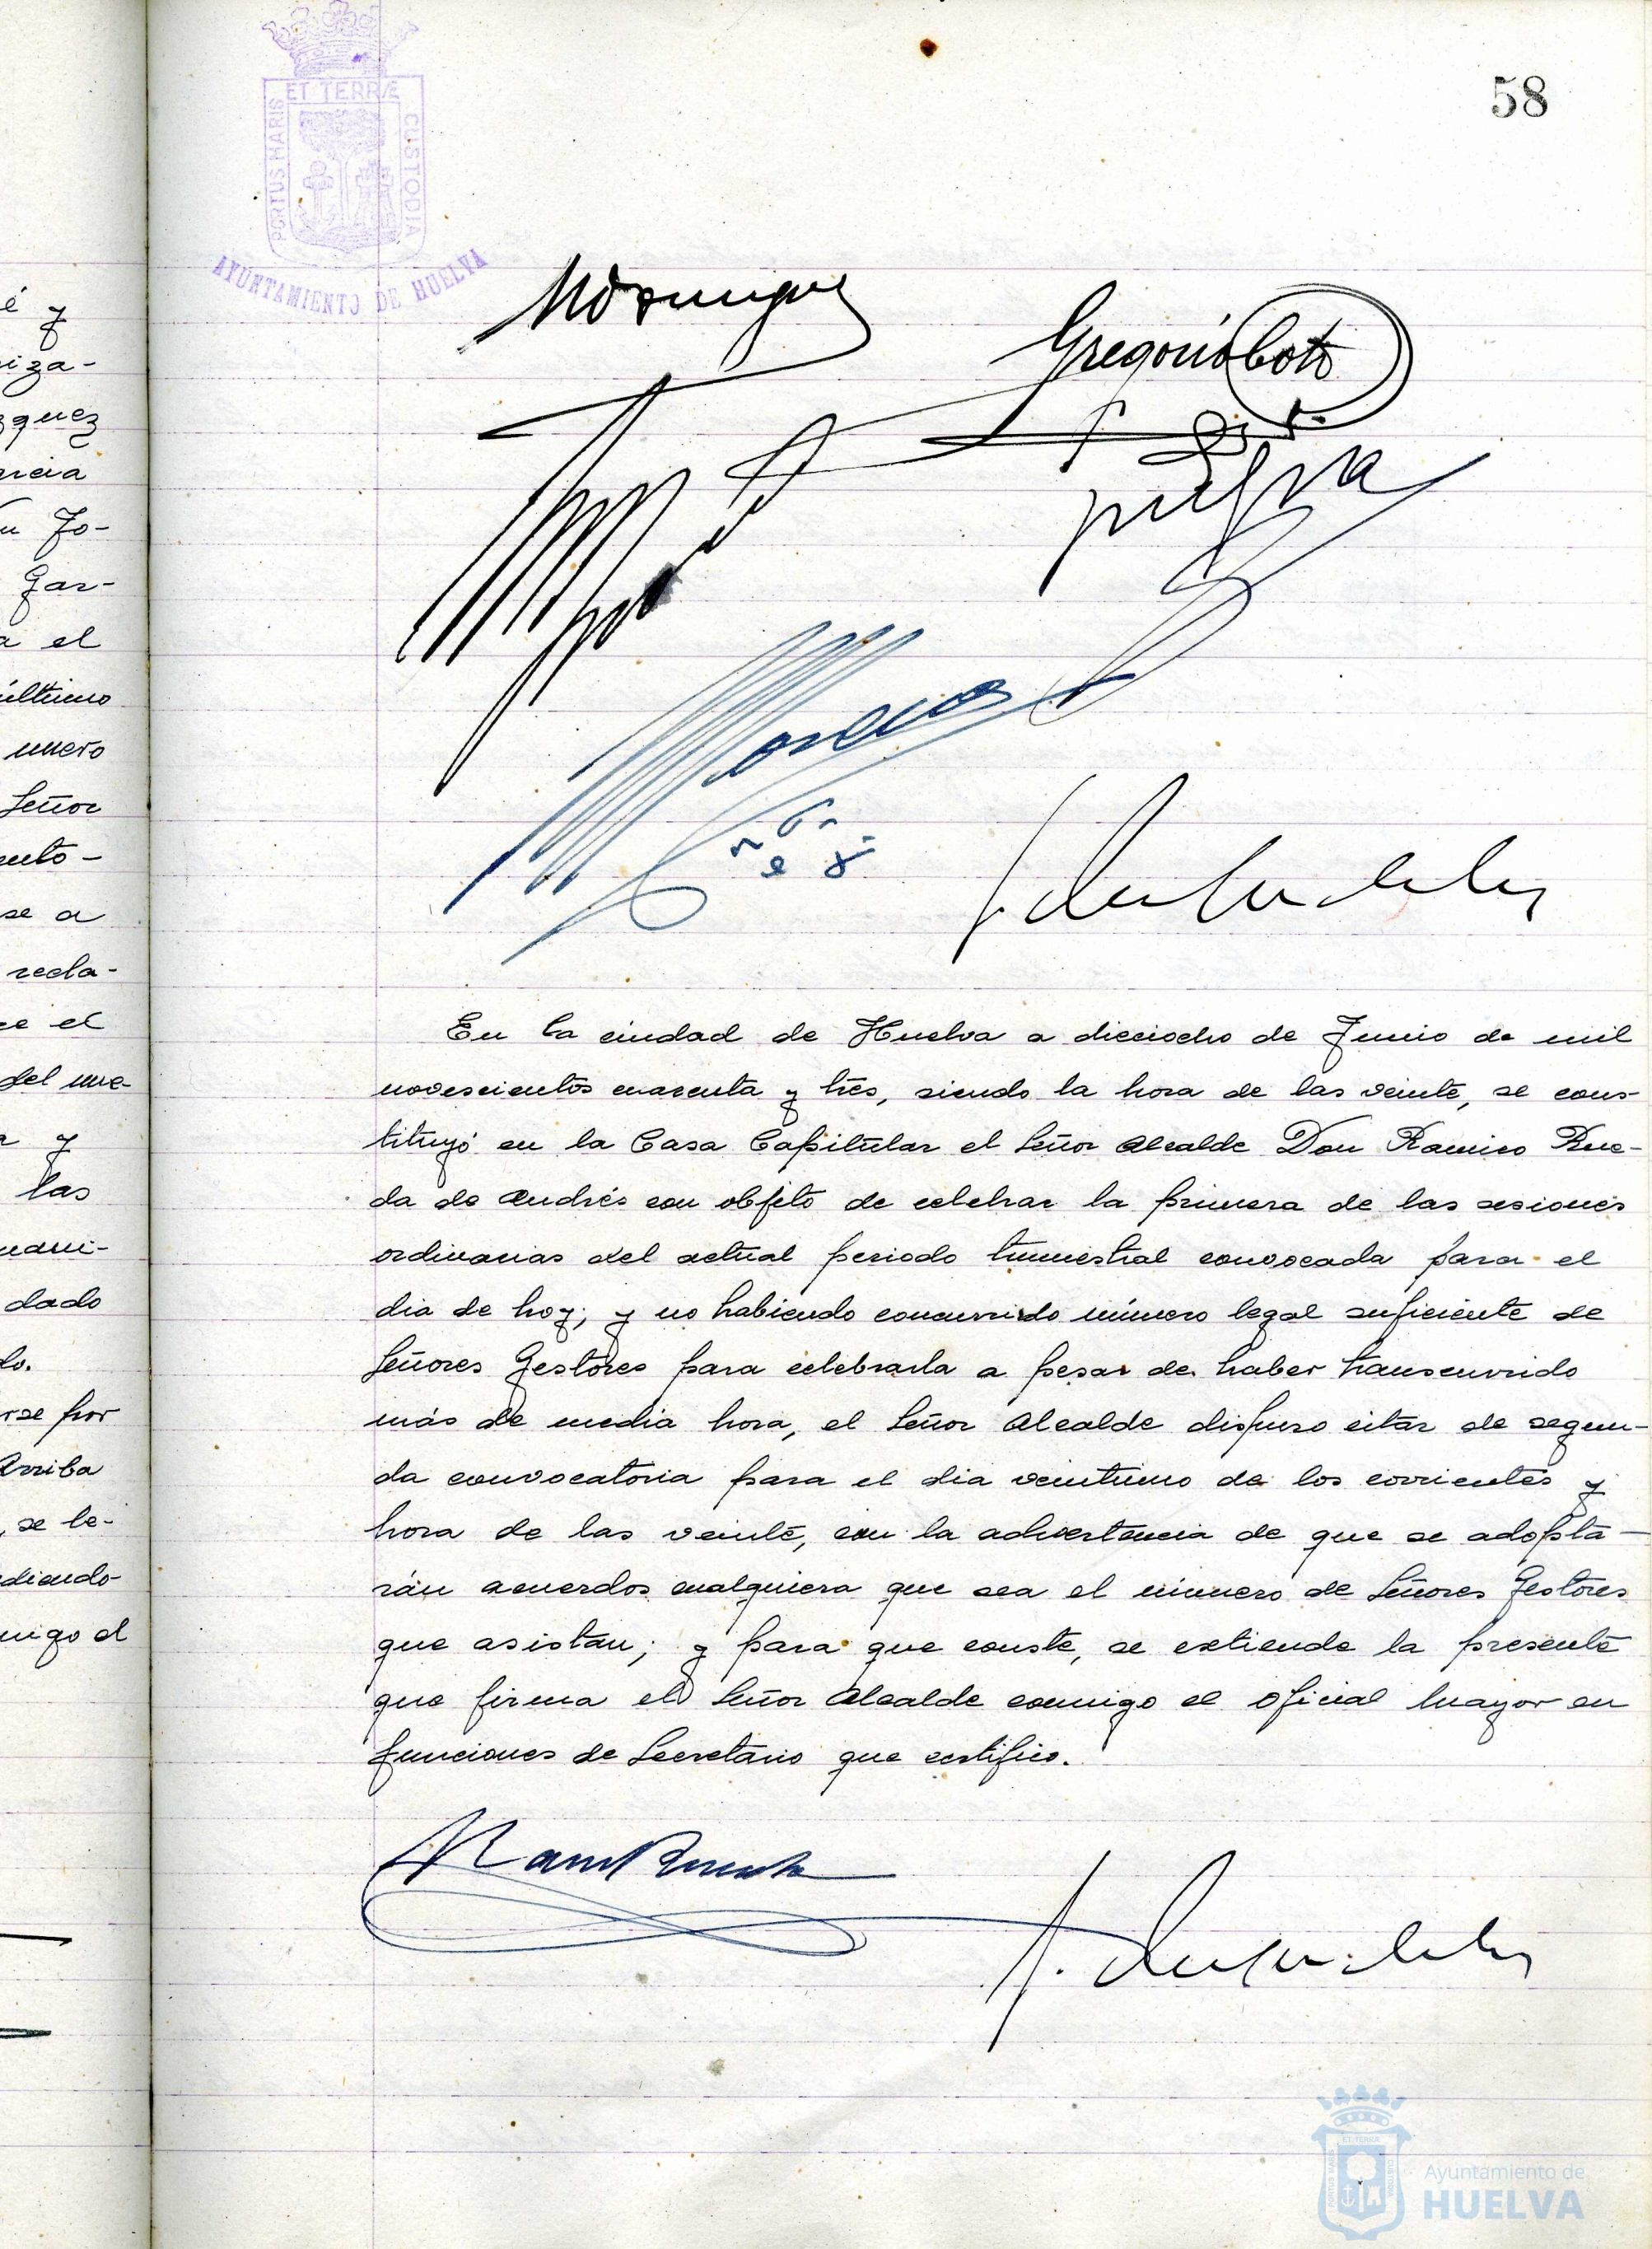 58
PORTUS MARIS ET TERRÆ CUSTODIA
AYUNTAMIENTO DE HUELVA
é y
riza-
zquez
arcia
n Jo-
Gar-
a el
último
umero
Señor
unto-
se a
recla-
ce el
del me-
y
las
dado
lo.
rse por
Arriba
, se le-
diendo-
migo el
Gregorio Coto
En la ciudad de Huelva a dieciocho de Junio de mil
novescientos cuarenta y tres, siendo la hora de las veinte, se cons-
tituyó en la Casa Capitular el Señor Alcalde Don Ramiro Rue-
da de Andrés con objeto de celebrar la primera de las sesiones
ordinarias del actual periodo trimestral convocada para el
dia de hoy; y no habiendo concurrido número legal suficiente de
Señores Gestores para celebrarla a pesar de haber transcurrido
más de media hora, el Señor Alcalde dispuso citar de segun-
da convocatoria para el dia veintiuno de los corrientes y
hora de las veinte, con la advertencia de que se adopta-
rán acuerdos cualquiera que sea el número de Señores Gestores
que asistan; y para que conste, se extiende la presente
que firma el Señor Alcalde conmigo el Oficial Mayor en
funciones de Secretario que certifico.
Ayuntamiento de
HUELVA